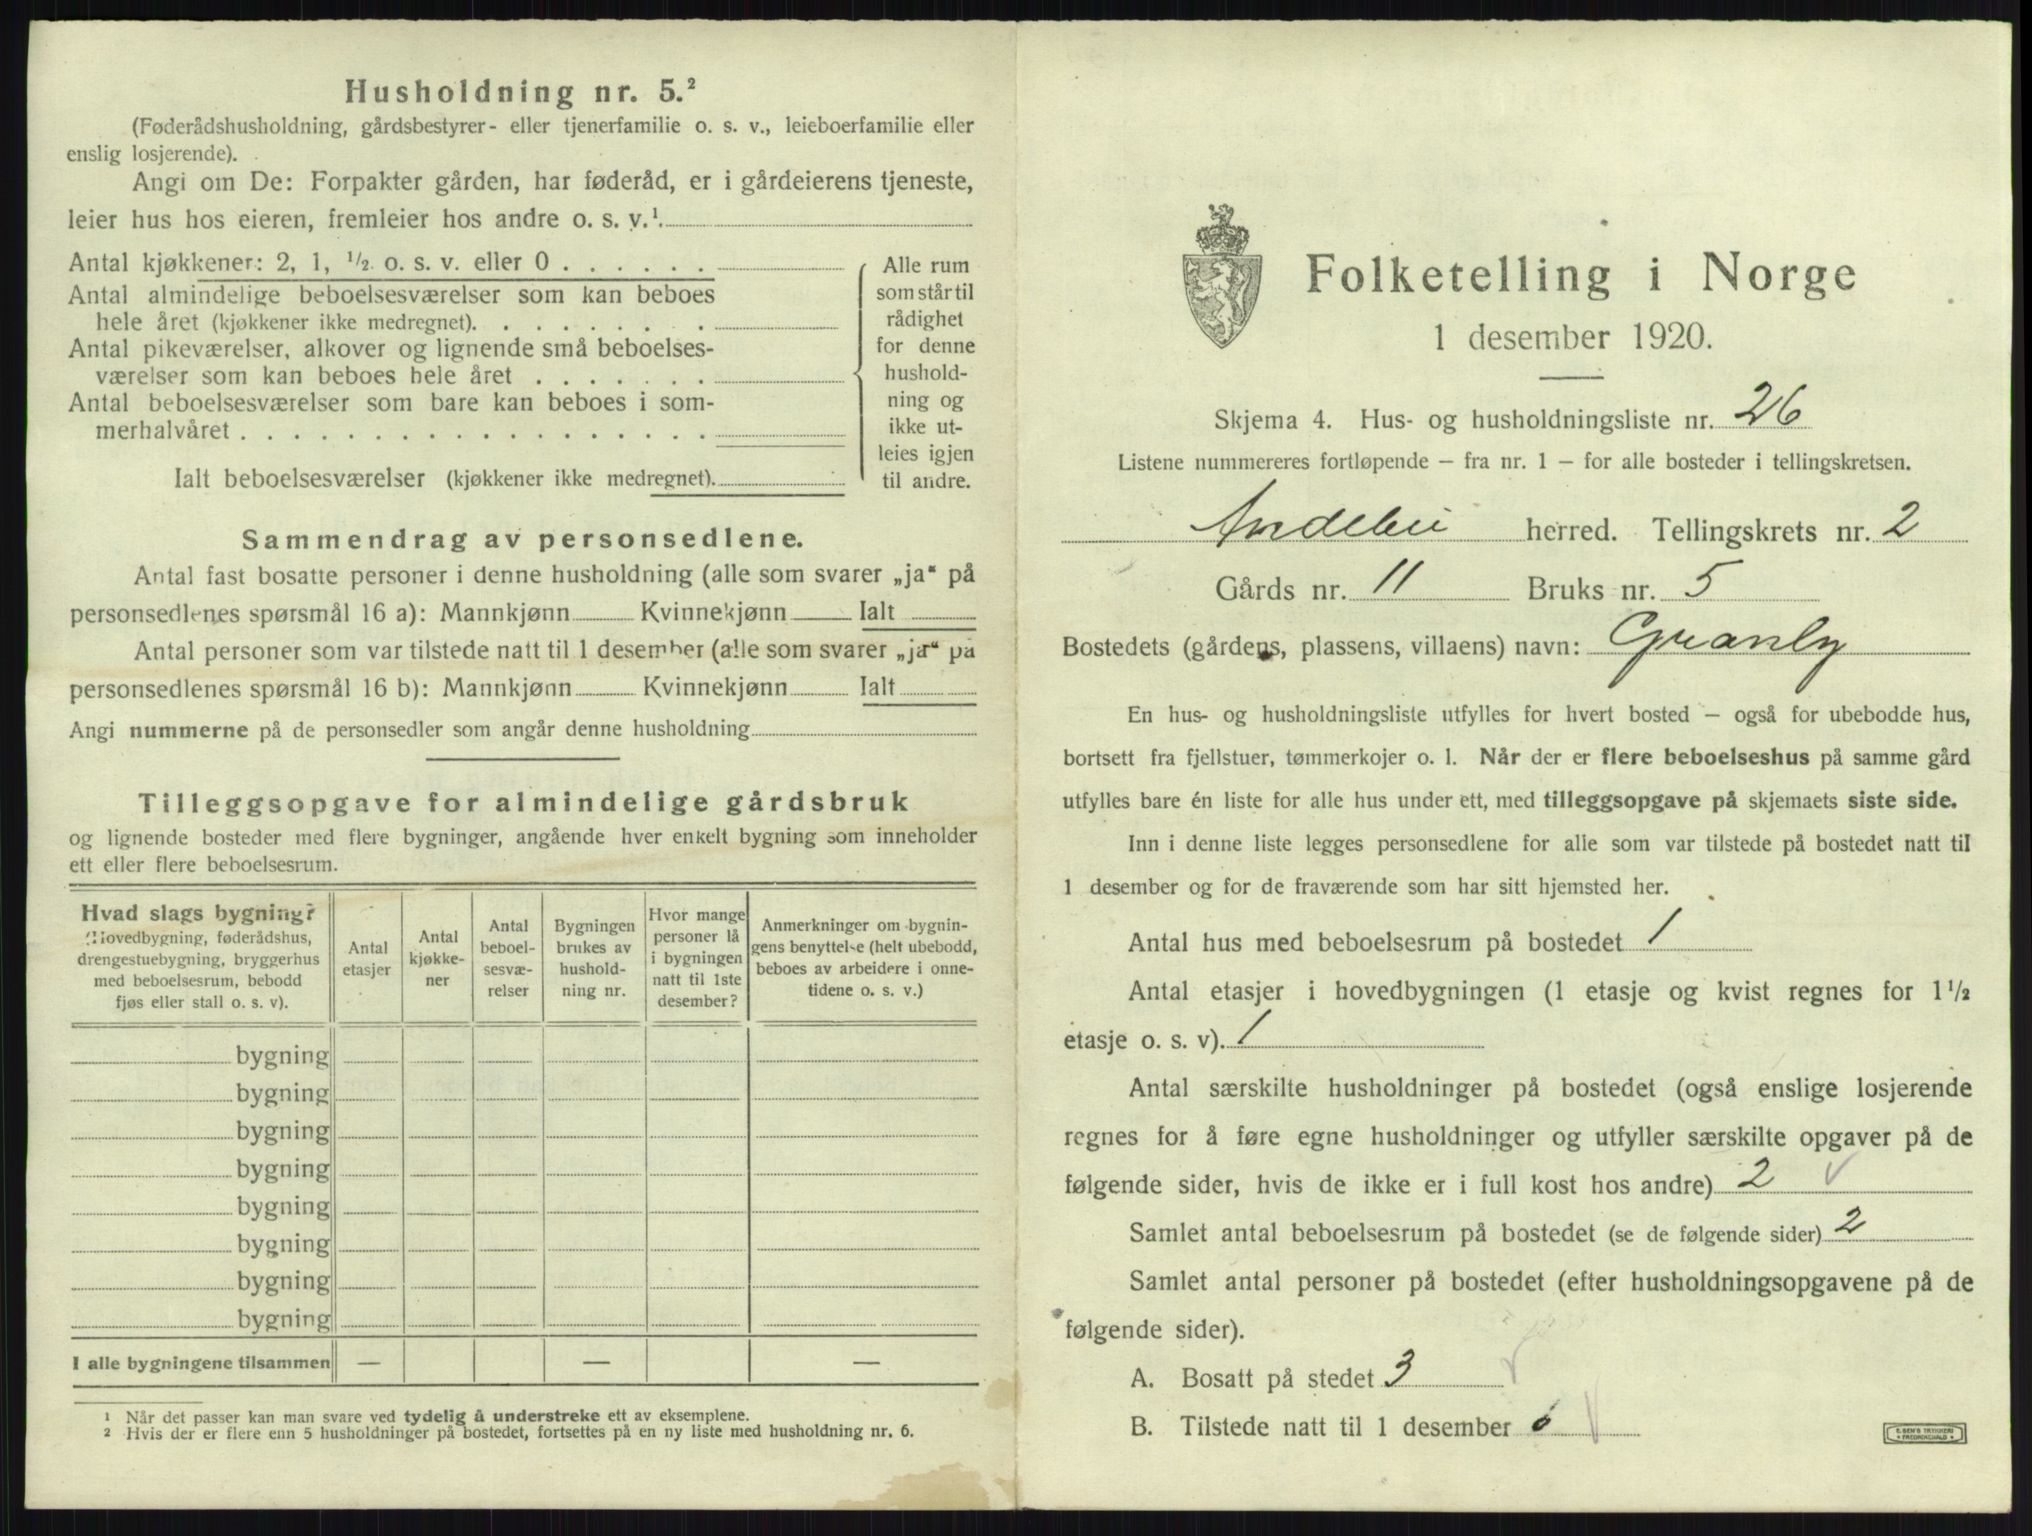 Husholdning nr. 5.²
(Føderådshusholdning, gårdsbestyrer- eller tjenerfamilie o. s. v., leieboerfamilie eller
enslig losjerende).
Angi om De: Forpakter gården, har føderåd, er i gårdeierens tjeneste,
leier hus hos eieren, fremleier hos andre o. s. v.¹.
Antal kjøkkener: 2, 1, ½ o. s. v. eller 0 . . . . . .
Antal almindelige beboelsesværelser som kan beboes
hele året (kjøkkener ikke medregnet). . . . . . . . .
Antal pikeværelser, alkover og lignende små beboelses-
værelser som kan beboes hele året . . . . . . .
Antal beboelsesværelser som bare kan beboes i som-
merhalvåret . . . . . . . . . . . . . . . . . .
Ialt beboelsesværelser (kjøkkener ikke medregnet).
Alle rum
som står til
rådighet
for denne
hushold-
ning og
ikke ut-
leies igjen
til andre.
Sammendrag av personsedlene.
Antal fast bosatte personer i denne husholdning (alle som svarer „ja“ på
personsedlenes spørsmål 16 a): Mannkjønn Kvinnekjønn Ialt
Antal personer som var tilstede natt til 1 desember (alle som svarer „ja“ på
personsedlenes spørsmål 16 b): Mannkjønn Kvinnekjønn Ialt
Angi nummerne på de personsedler som angår denne husholdning
Tilleggsopgave for almindelige gårdsbruk
og lignende bosteder med flere bygninger, angående hver enkelt bygning som inneholder
ett eller flere beboelsesrum.
Hvad slags bygning?
(Hovedbygning, føderådshus,
drengestuebygning, bryggerhus
med beboelsesrum, bebodd
fjøs eller stall o. s. v).
Antal
etasjer
Antal
kjøkke-
ner
Antal
beboel-
sesvæ-
relser
Bygningen
brukes av
hushold-
ning nr.
Hvor mange
personer lå
i bygningen
natt til 1ste
desember?
Anmerkninger om bygnin-
gens benyttelse (helt ubebodd,
beboes av arbeidere i onne-
tidene o. s. v.)
bygning
bygning
bygning
bygning
bygning
bygning
bygning
bygning
I alle bygningene tilsammen — — —
¹ Når det passer kan man svare ved tydelig å understreke ett av eksemplene.
² Hvis der er flere enn 5 husholdninger på bostedet, fortsettes på en ny liste med husholdning nr. 6.
Folketelling i Norge
1 desember 1920.
Skjema 4. Hus- og husholdningsliste nr. 26
Listene nummereres fortløpende — fra nr. 1 — for alle bosteder i tellingskretsen.
Andebu herred. Tellingskrets nr. 2
Gårds nr. 11 Bruks nr. 5
Bostedets (gårdens, plassens, villaens) navn: Granly
En hus- og husholdningsliste utfylles for hvert bosted — også for ubebodde hus,
bortsett fra fjellstuer, tømmerkojer o. l. Når der er flere beboelseshus på samme gård
utfylles bare én liste for alle hus under ett, med tilleggsopgave på skjemaets siste side.
Inn i denne liste legges personsedlene for alle som var tilstede på bostedet natt til
1 desember og for de fraværende som har sitt hjemsted her.
Antal hus med beboelsesrum på bostedet 1
Antal etasjer i hovedbygningen (1 etasje og kvist regnes for 1½
etasje o. s. v). 1
Antal særskilte husholdninger på bostedet (også enslige losjerende
regnes for å føre egne husholdninger og utfyller særskilte opgaver på de
følgende sider, hvis de ikke er i full kost hos andre) 2
Samlet antal beboelsesrum på bostedet (se de følgende sider) 2
Samlet antal personer på bostedet (efter husholdningsopgavene på de
følgende sider).
A. Bosatt på stedet 3
B. Tilstede natt til 1 desember